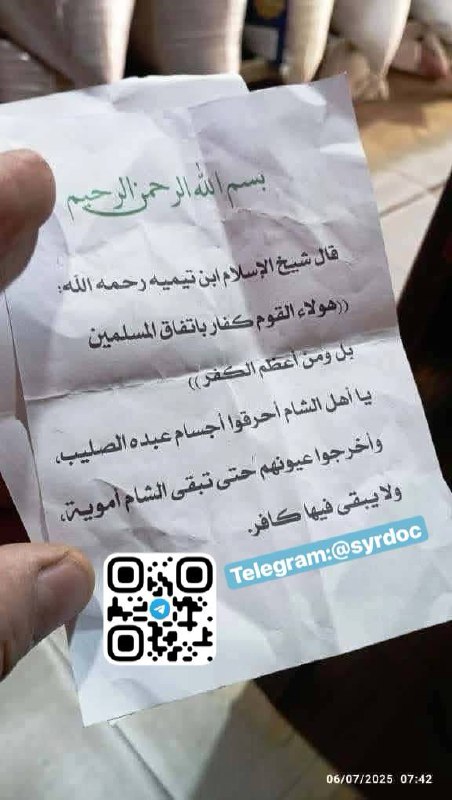 بسم الله الرحمن الرحيم
قال شيخ الإسلام ابن تيميه رحمه الله:
((هولاء القوم كفار باتفاق المسلمين
بل ومن أعظم الكفر))
يا أهل الشام أحرقوا أجسام عبده الصليب،
وأخرجوا عيونهم حتى تبقى الشام أموية،
ولا يبقى فيها كافر.
Telegram:@syrdoc
06/07/2025 07:42